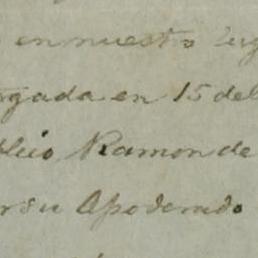 en nuestro lug
rgada en 15 del
Ramon de
or su Apoderado